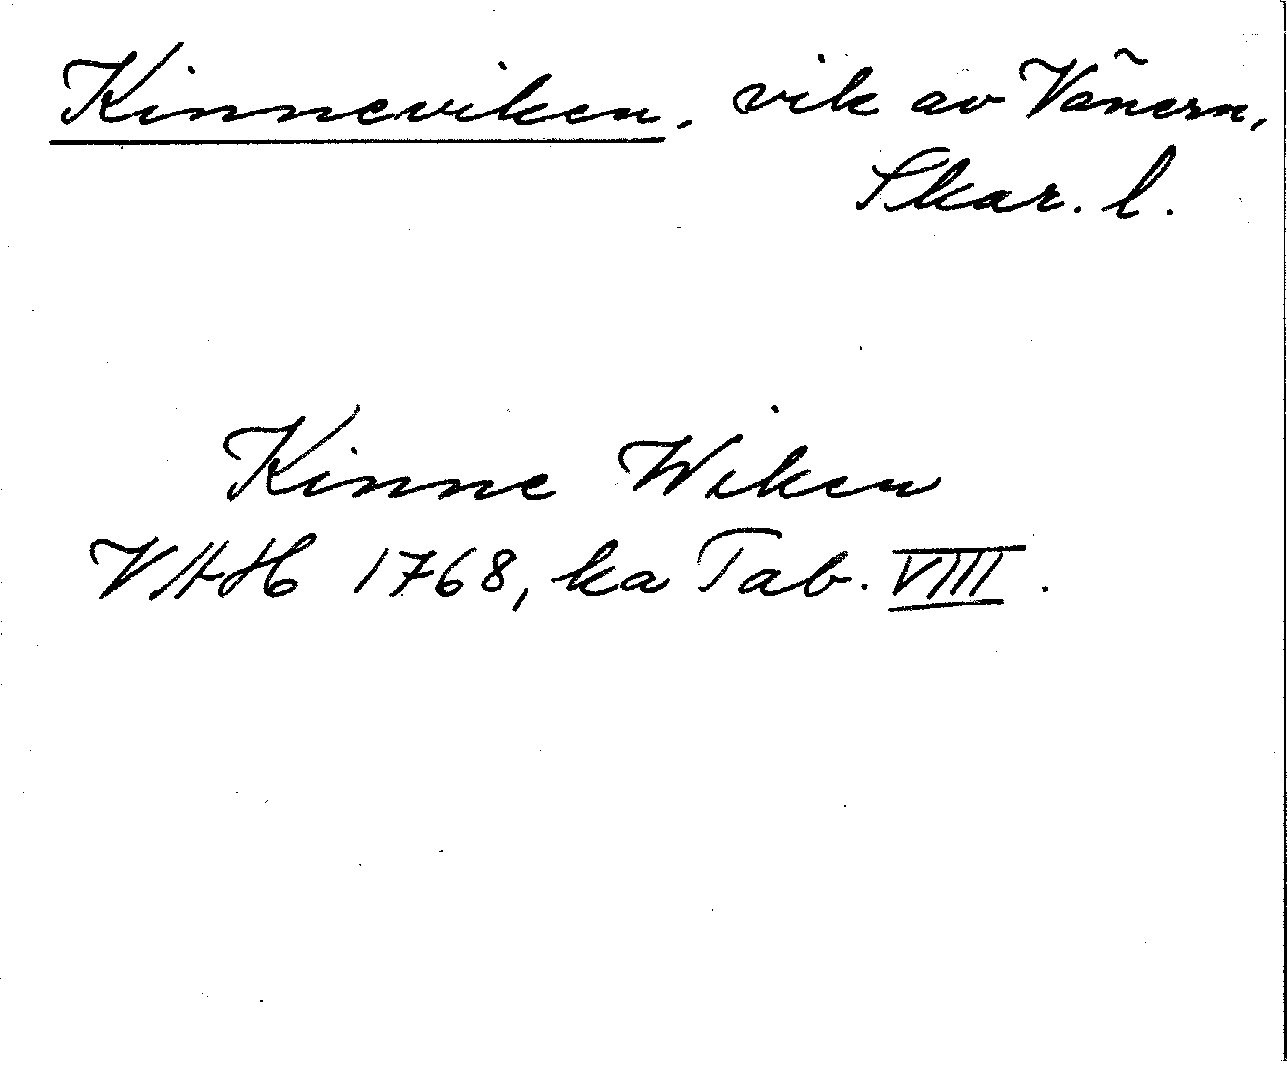 Kinneviken, vik av Vänern,
Skar. l.
Kinne Wiken
VAH 1768, ka Tab. VIII.